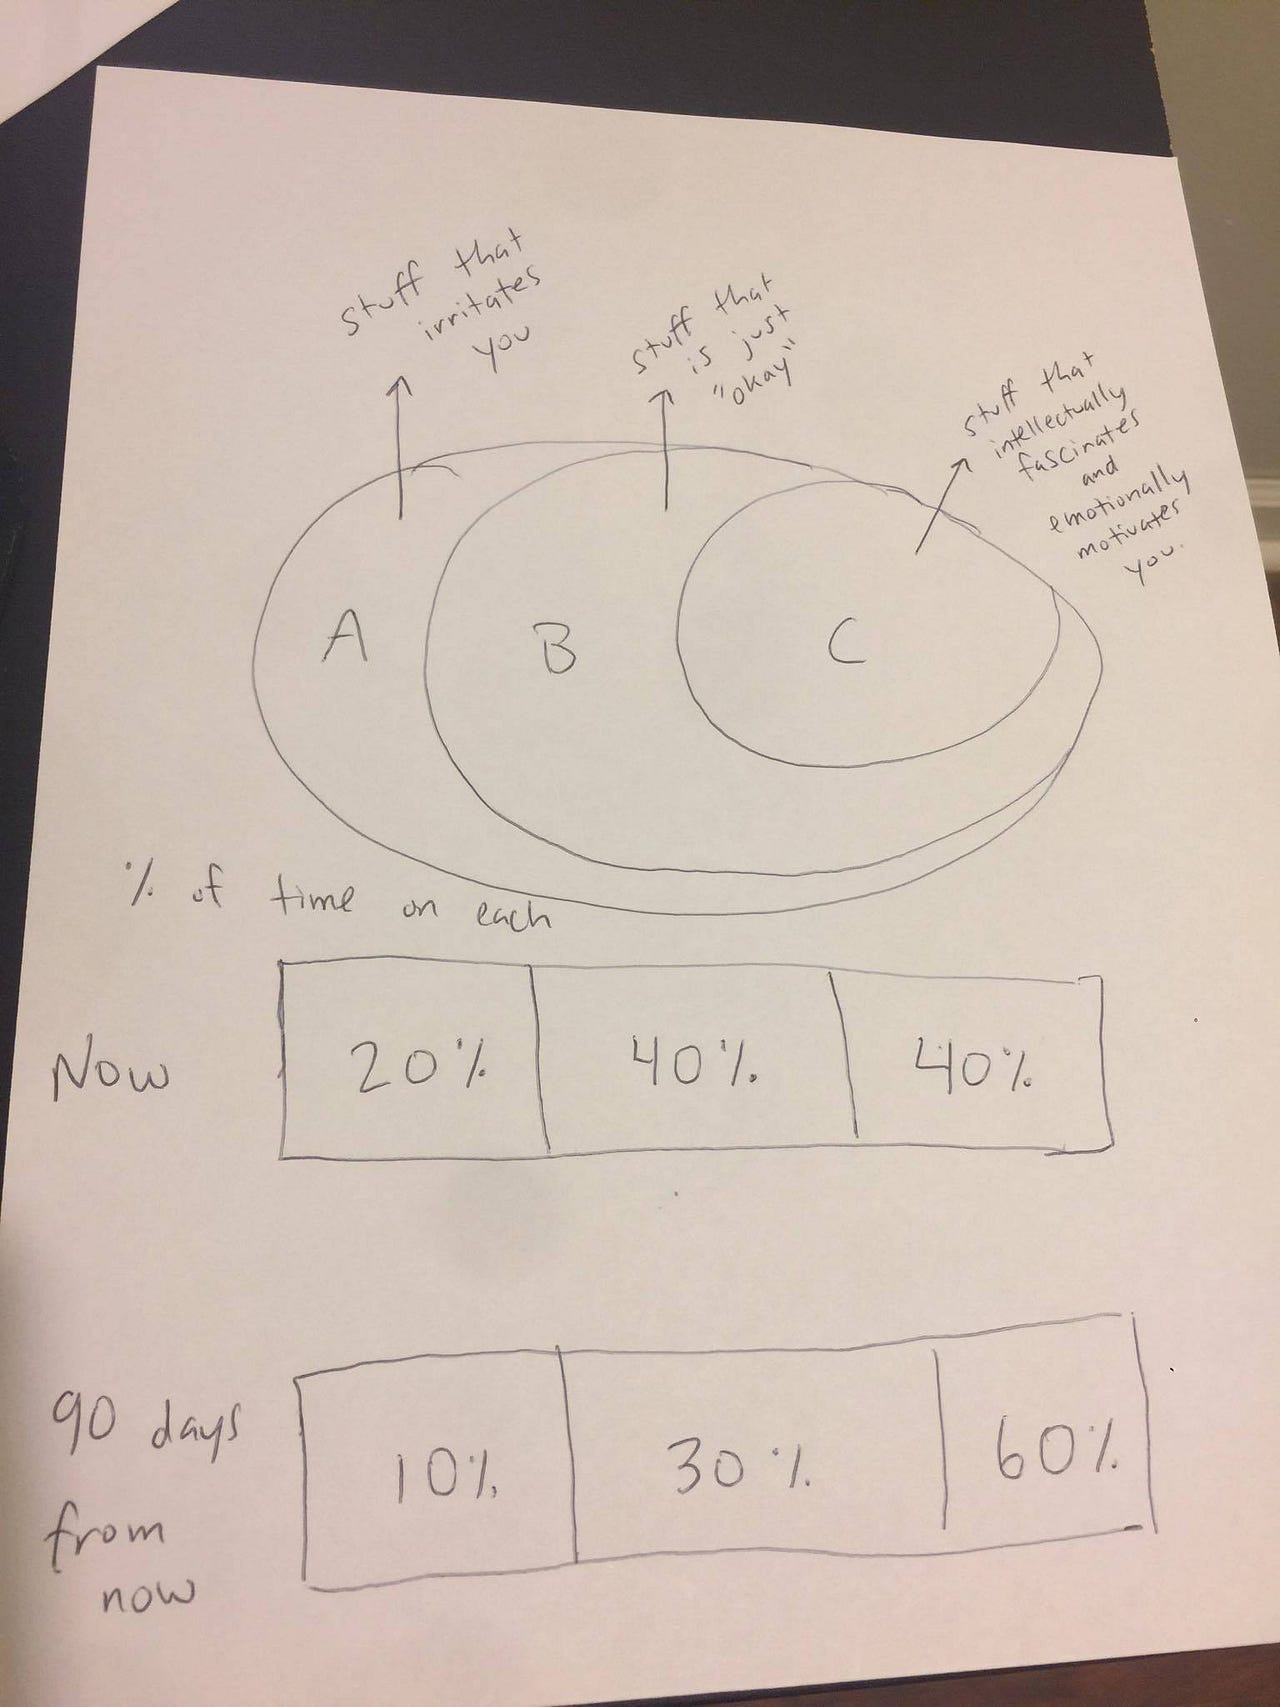 stuff that
irritates
you
stuff that
is just
"okay"
stuff that
intellectually
fascinates
and
emotionally
motivates
you.
A
B
C
% of time on each
Now
20%
40%
40%
90 days
from
now
10%
30%
60%